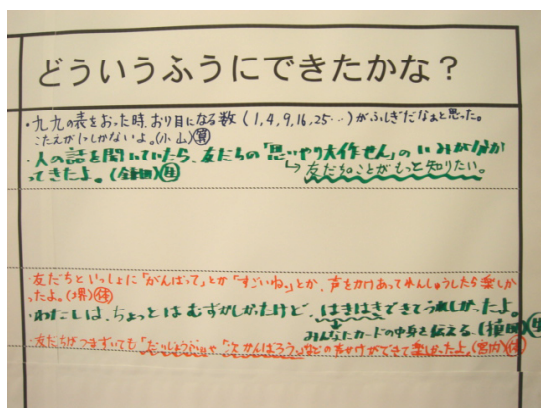 どういうふうにできたかな？
・九九の表をおった時、おり目になる数(1,4,9,16,25…)がふしぎだなぁと思った。
こたえが1つしかないよ。(小山)算
・人の話を聞いていたら、友だちの「思いやり大作せん」のいみが分か
ってきたよ。
友だちのことがもっと知りたい。
・友だちといっしょに「がんばって」とか「すごいね。」とか、声をかけあってれんしゅうしたら楽しか
ったよ。(堺)体
・わたしは、ちょっとはむずかしかったけど、はきはきできてうれしかったよ。
みんなにカードの中身を伝える。
・友だちがつまずいても「だいじょうぶ」や「がんばろう」などの声かけができて楽しかったよ。(宮内)体